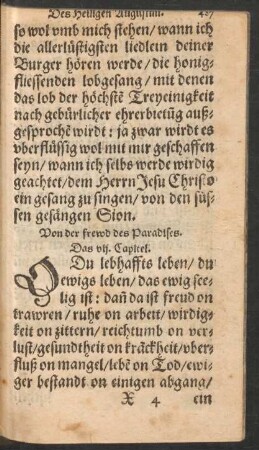 Des Heiligen Augustini.
so wol vmb mich stehen/wann ich
die allerlüstigsten liedlein deiner
Burger hören werde/die honig-
fliessenden lobgesang/mit denen
das lob der höchstē Treyeinigkeit
nach gebürlicher ehrerbietūg auß-
gesprochē wirdt: ja zwar wirdt es
vberflüssig wol mit mir geschaffen
seyn/wann ich selbs werde wirdig
geachtet/dem Herrn Jesu Christo
ein gesang zu singen/von den süs-
sen gesängen Sion.
Von der frewd des Paradises.
Das vij. Capitel.
DU lebhaffts leben/du
ewigs leben/das ewig see-
lig ist: dañ da ist freud on
trawren/ruhe on arbeit/wirdig-
keit on zittern/reichtumb on ver-
lust/gesundtheit on krāckheit/vber-
fluß on mangel/lebē on Tod/ewi-
ger bestandt on einigen abgang/
X 4 ein